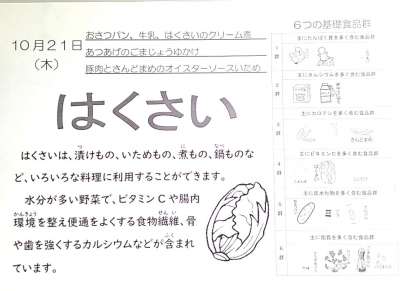 10月21日
(木)
おさつパン、牛乳、はくさいのクリーム煮
あつあげのごまじょうゆかけ
豚肉とさんどまめのオイスターソースいため
はくさい
はくさいは、漬けもの、いためもの、煮もの、鍋ものな
ど、いろいろな料理に利用することができます。
水分が多い野菜で、ビタミンCや腸内
環境を整え便通をよくする食物繊維、骨
や歯を強くするカルシウムなどが含まれ
ています。
6つの基礎食品群
1群
主にたんぱく質を多く含む食品群
2群
主にカルシウムを多く含む食品群
3群
主にカロテンを多く含む食品群
さんどまめ
4群
主にビタミンCを多く含む食品群
5群
主に炭水化物を多く含む食品群
6群
主に脂質を多く含む食品群